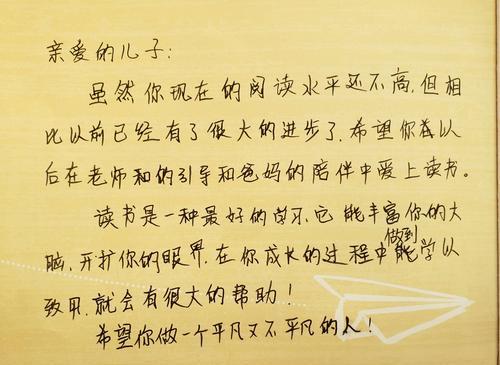 亲爱的儿子:
虽然你现在的阅读水平还不高,但相
比以前已经有了很大的进步了.希望你以
后在老师和的引导和爸妈的陪伴中爱上读书。
读书是一种最好的学习.它能丰富你的大
脑,开扩你的眼界.在你成长的过程中做到能学以
致用.就会有很大的帮助!
希望你做一个平凡又不平凡的人!